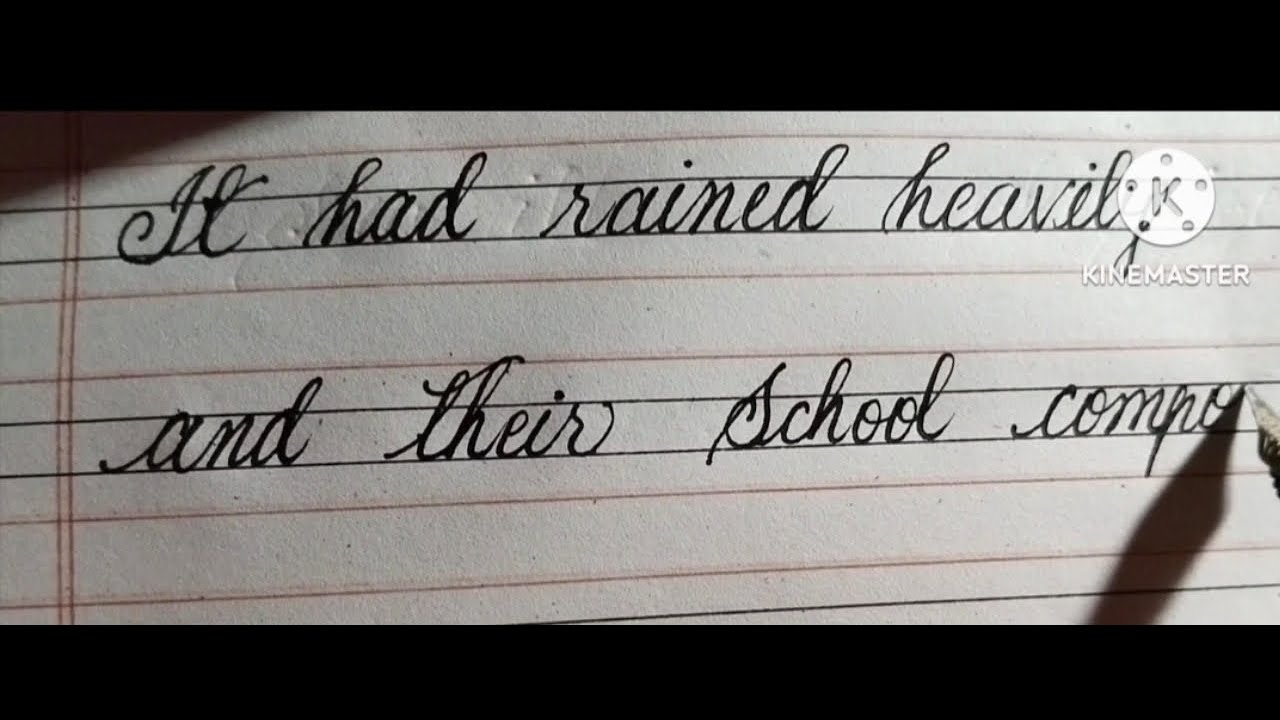 It had rained heavily
KINEMASTER
and their school compo